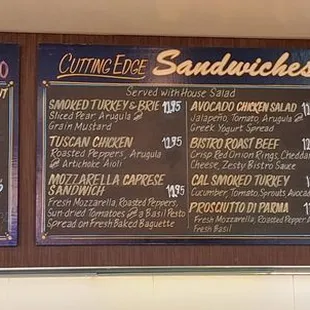 CUTTING EDGE Sandwiches
Served with House Salad
SMOKED TURKEY & BRIE 12.95
Sliced Pear, Arugula &
Grain Mustard
TUSCAN CHICKEN 12.95
Roasted Peppers, Arugula
& Artichoke Aioli
MOZZARELLA CAPRESE
SANDWICH 12.95
Fresh Mozzarella, Roasted Peppers,
Sun-dried Tomatoes & a Basil Pesto
Spread on Fresh Baked Baguette
AVOCADO CHICKEN SALAD
Jalapeño, Tomato, Arugula &
Greek Yogurt Spread
BISTRO ROAST BEEF
Crisp Red Onion Rings, Cheddar
Cheese, Zesty Bistro Sauce
CAL SMOKED TURKEY
Cucumber, Tomato, Sprouts Avocad
PROSCIUTTO DI PARMA
Fresh Mozzarella, Roasted Pepper
Fresh Basil